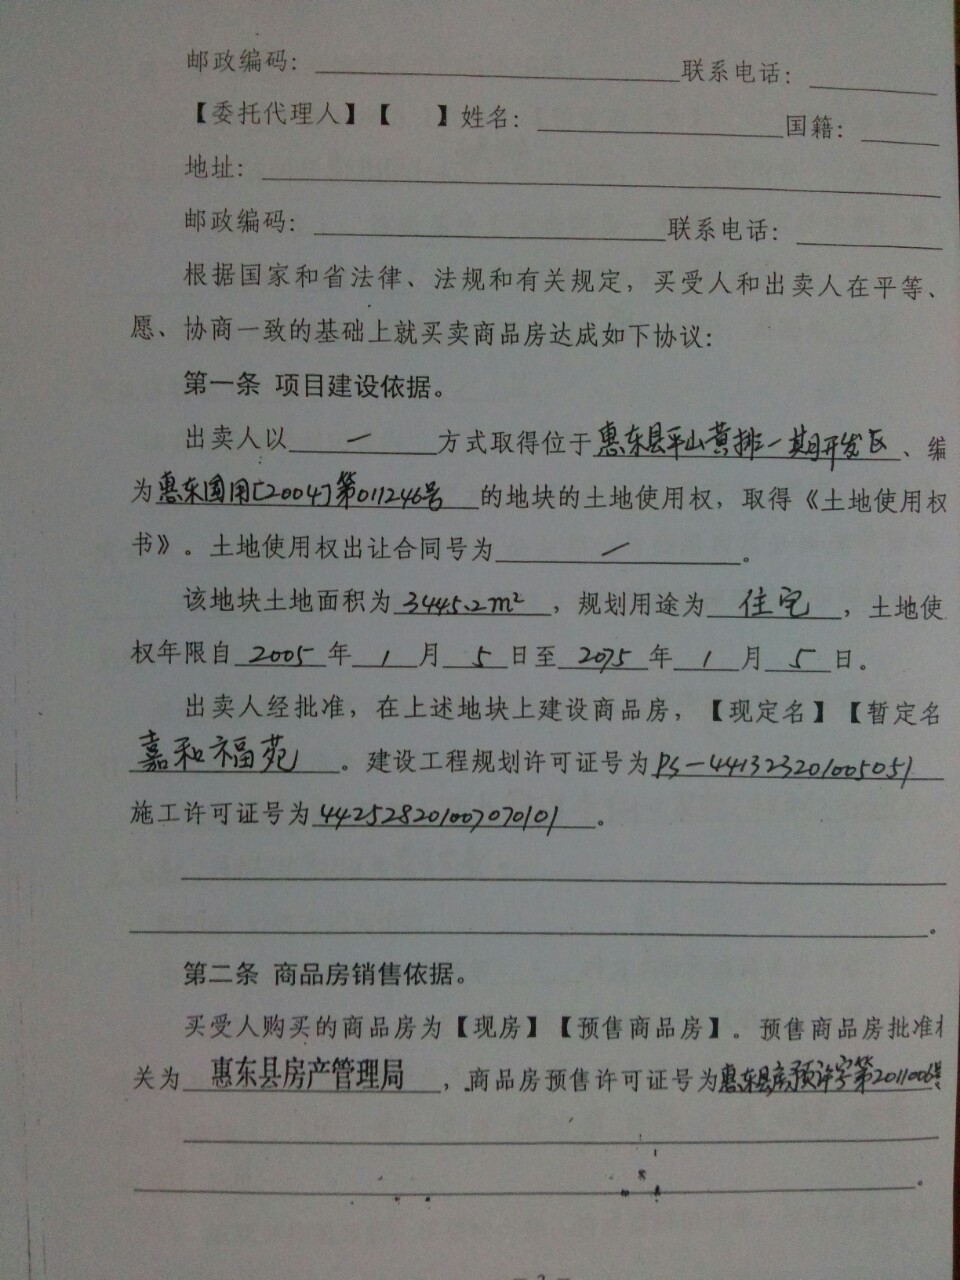 邮政编码：　联系电话：
【委托代理人】【　】姓名：　国籍：
地址：
邮政编码：　联系电话：
根据国家和省法律、法规和有关规定，买受人和出卖人在平等、
愿、协商一致的基础上就买卖商品房达成如下协议：
第一条 项目建设依据。
出卖人以 一 方式取得位于惠东县平山黄排一期开发区、编
为惠东国用[2004]第011246号 的地块的土地使用权，取得《土地使用权
书》。土地使用权出让合同号为 一 。
该地块土地面积为 3445.2m² ，规划用途为 住宅 ，土地使
权年限自 2005 年 1 月 5 日至 2075 年 1 月 5 日。
出卖人经批准，在上述地块上建设商品房，【现定名】【暂定名
嘉和福苑 。建设工程规划许可证号为PS-441323201005051
施工许可证号为442528201007070101 。
。
第二条 商品房销售依据。
买受人购买的商品房为【现房】【预售商品房】。预售商品房批准机
关为 惠东县房产管理局 ，商品房预售许可证号为惠东县房预许字第2011006号
。